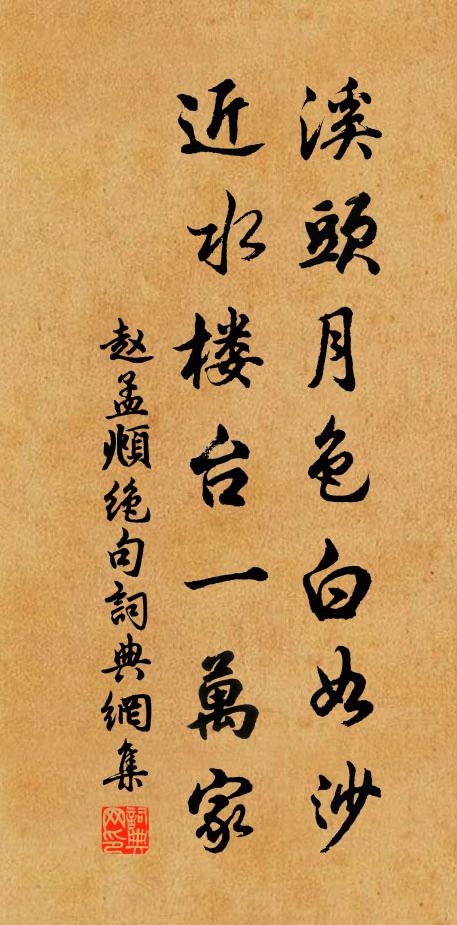 溪頭月色白如沙
近水楼台一萬家
赵孟頫绝句詞典網集
詞典网印